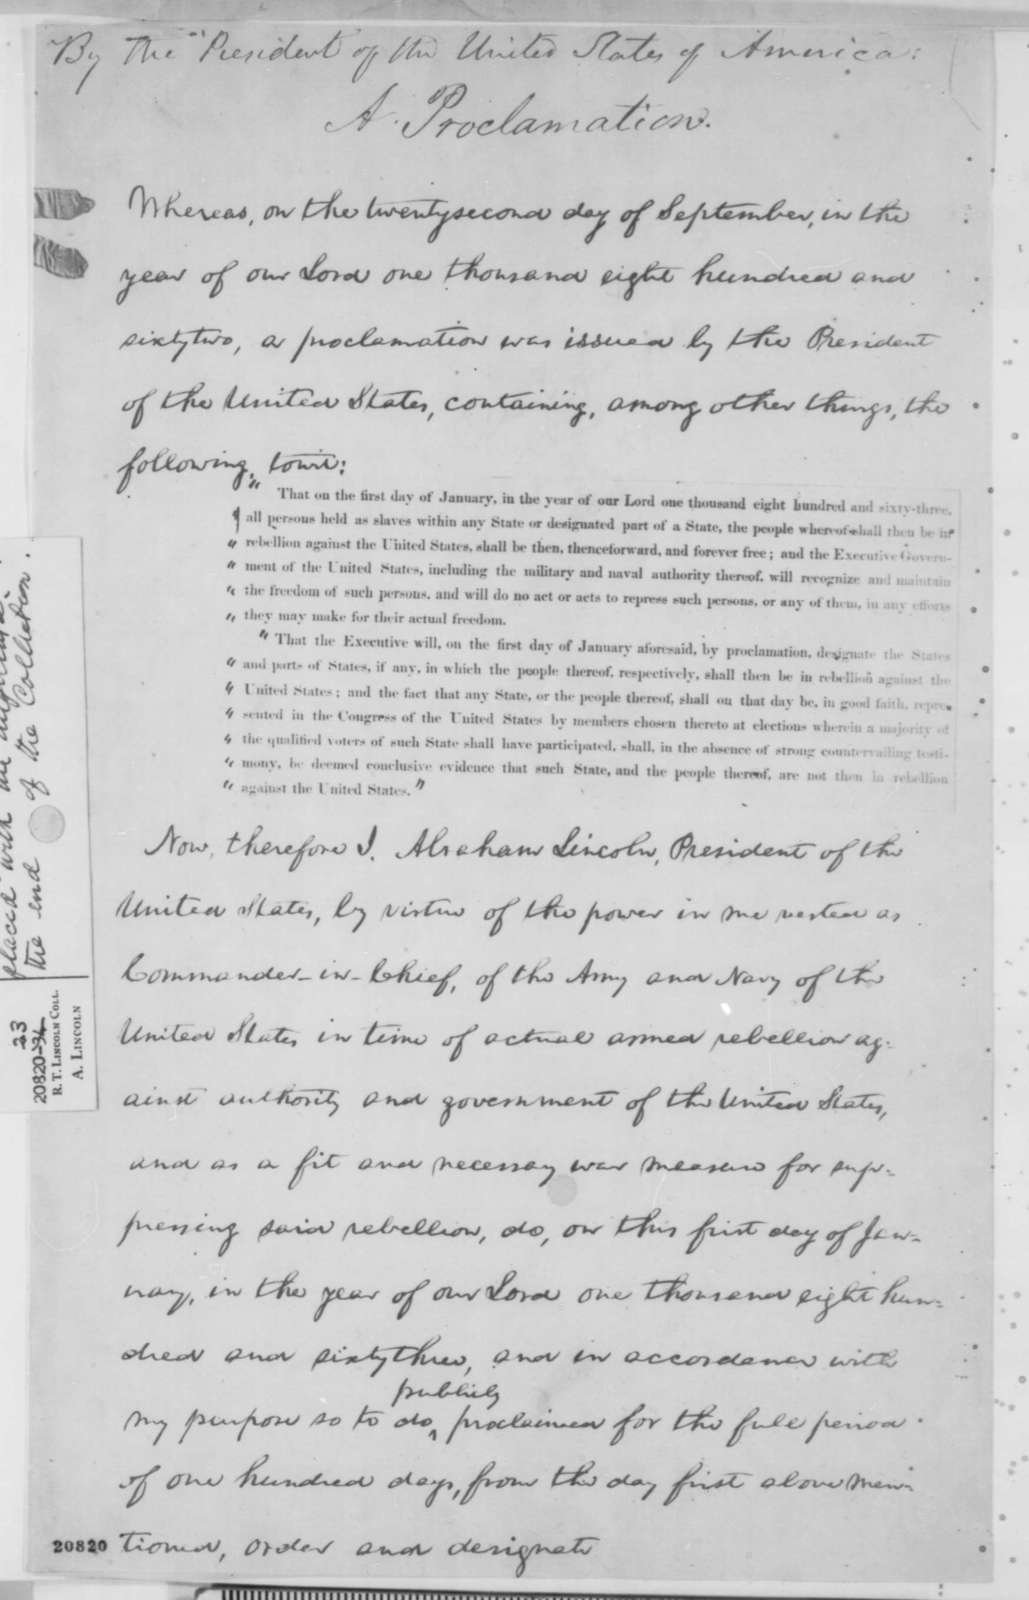 By the President of the United States of America:
A Proclamation.
Whereas, on the twentysecond day of September, in the
year of our Lord one thousand eight hundred and
sixtytwo, a proclamation was issued by the President
of the United States, containing, among other things, the
following, towit:
" That on the first day of January, in the year of our Lord one thousand eight hundred and sixty-three,
" all persons held as slaves within any State or designated part of a State, the people whereof shall then be in
" rebellion against the United States, shall be then, thenceforward, and forever free; and the Executive Govern-
" ment of the United States, including the military and naval authority thereof, will recognize and maintain
" the freedom of such persons, and will do no act or acts to repress such persons, or any of them, in any efforts
" they may make for their actual freedom.
" That the Executive will, on the first day of January aforesaid, by proclamation, designate the States
" and parts of States, if any, in which the people thereof, respectively, shall then be in rebellion against the
" United States; and the fact that any State, or the people thereof, shall on that day be, in good faith, repre-
" sented in the Congress of the United States by members chosen thereto at elections wherein a majority of
" the qualified voters of such State shall have participated, shall, in the absence of strong countervailing testi-
" mony, be deemed conclusive evidence that such State, and the people thereof, are not then in rebellion
" against the United States."
Now, therefore I, Abraham Lincoln, President of the
United States, by virtue of the power in me vested as
Commander-in-Chief, of the Army and Navy of the
United States in time of actual armed rebellion ag-
ainst authority and government of the United States,
and as a fit and necessary war measure for sup-
pressing said rebellion, do, on this first day of Jan-
uary, in the year of our Lord one thousand eight hun-
dred and sixtythree, and in accordance with
publicly
my purpose so to do, proclaimed for the full period
of one hundred days, from the day first above men-
tioned, order and designate
20820
placed with the
the end of the Collection.
23
20820-24
R. T. LINCOLN COLL.
A. LINCOLN